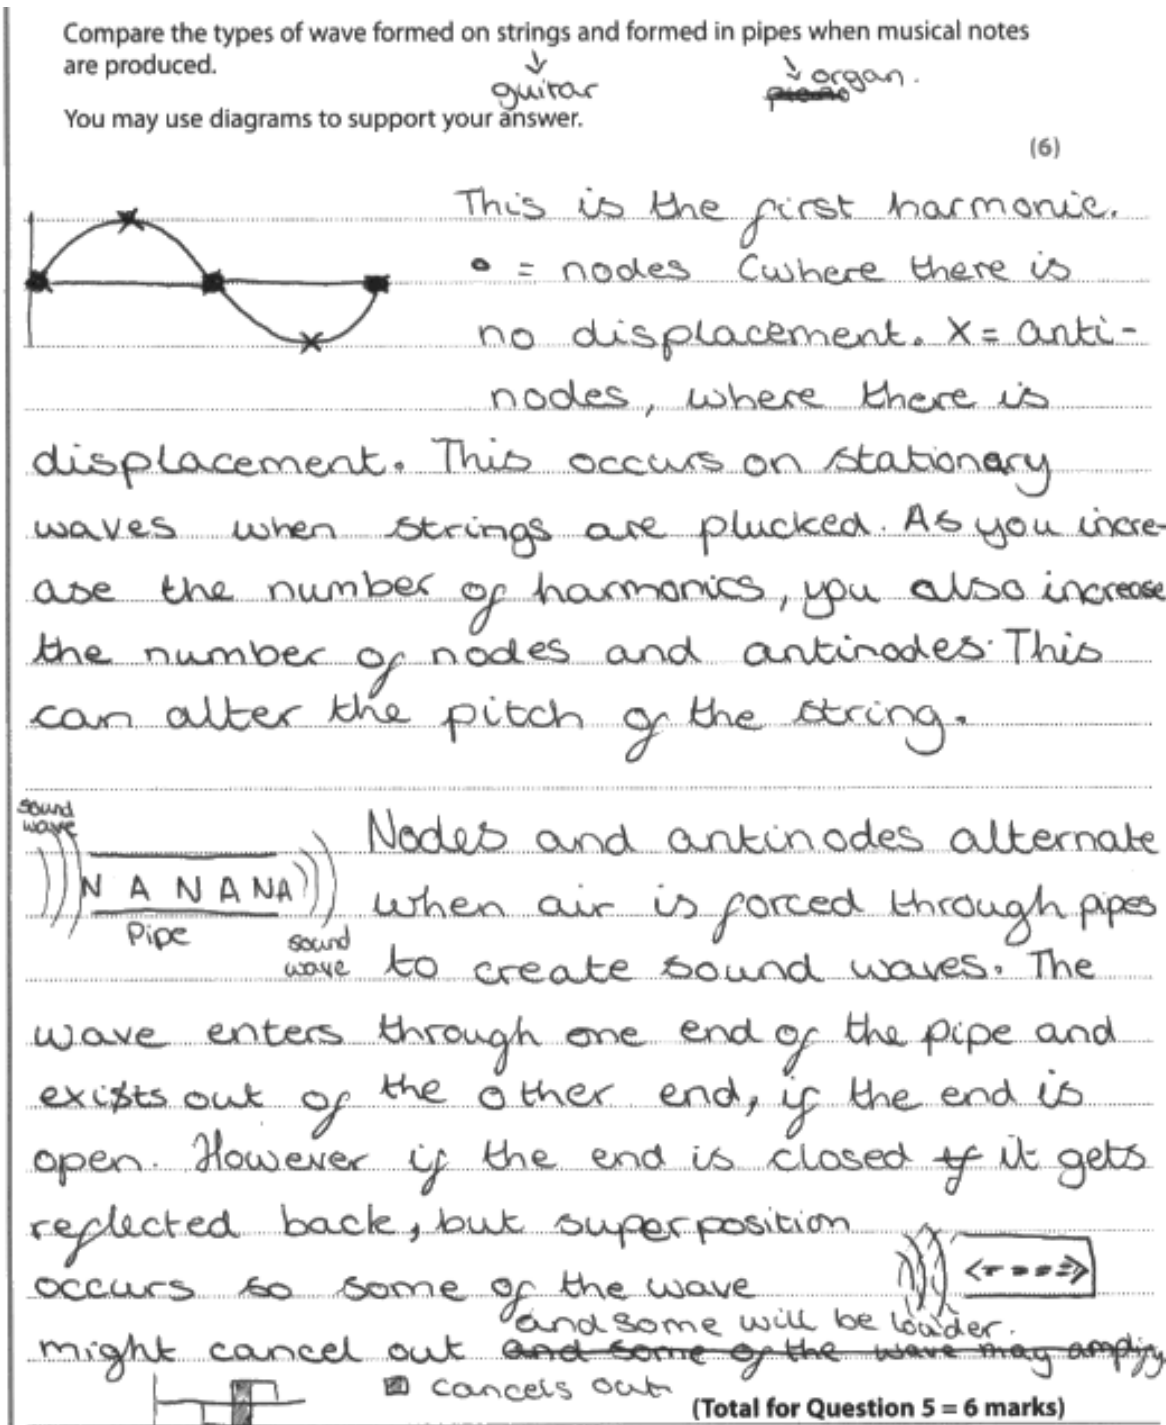 Compare the types of wave formed on strings and formed in pipes when musical notes
are produced.
guitar
organ.
You may use diagrams to support your answer.
(6)
This is the first harmonic.
• = nodes (where there is
no displacement. X = anti-
nodes, where there is
displacement. This occurs on stationary
waves when strings are plucked. As you incre-
ase the number of harmonics, you also increase
the number of nodes and antinodes. This
can alter the pitch of the string.
sound
wave
N A N A N A
Pipe
sound
wave
Nodes and antinodes alternate
when air is forced through pipes
to create sound waves. The
wave enters through one end of the pipe and
exists out of the other end, if the end is
open. However if the end is closed if it gets
reflected back, but superposition
occurs so some of the wave
and some will be louder.
might cancel out and some of the wave may amplify
cancels out
(Total for Question 5 = 6 marks)